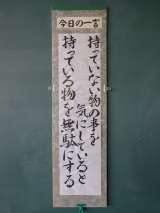 今日の一言
持っていない物の事を
気にしていると
持っている物を無駄にする